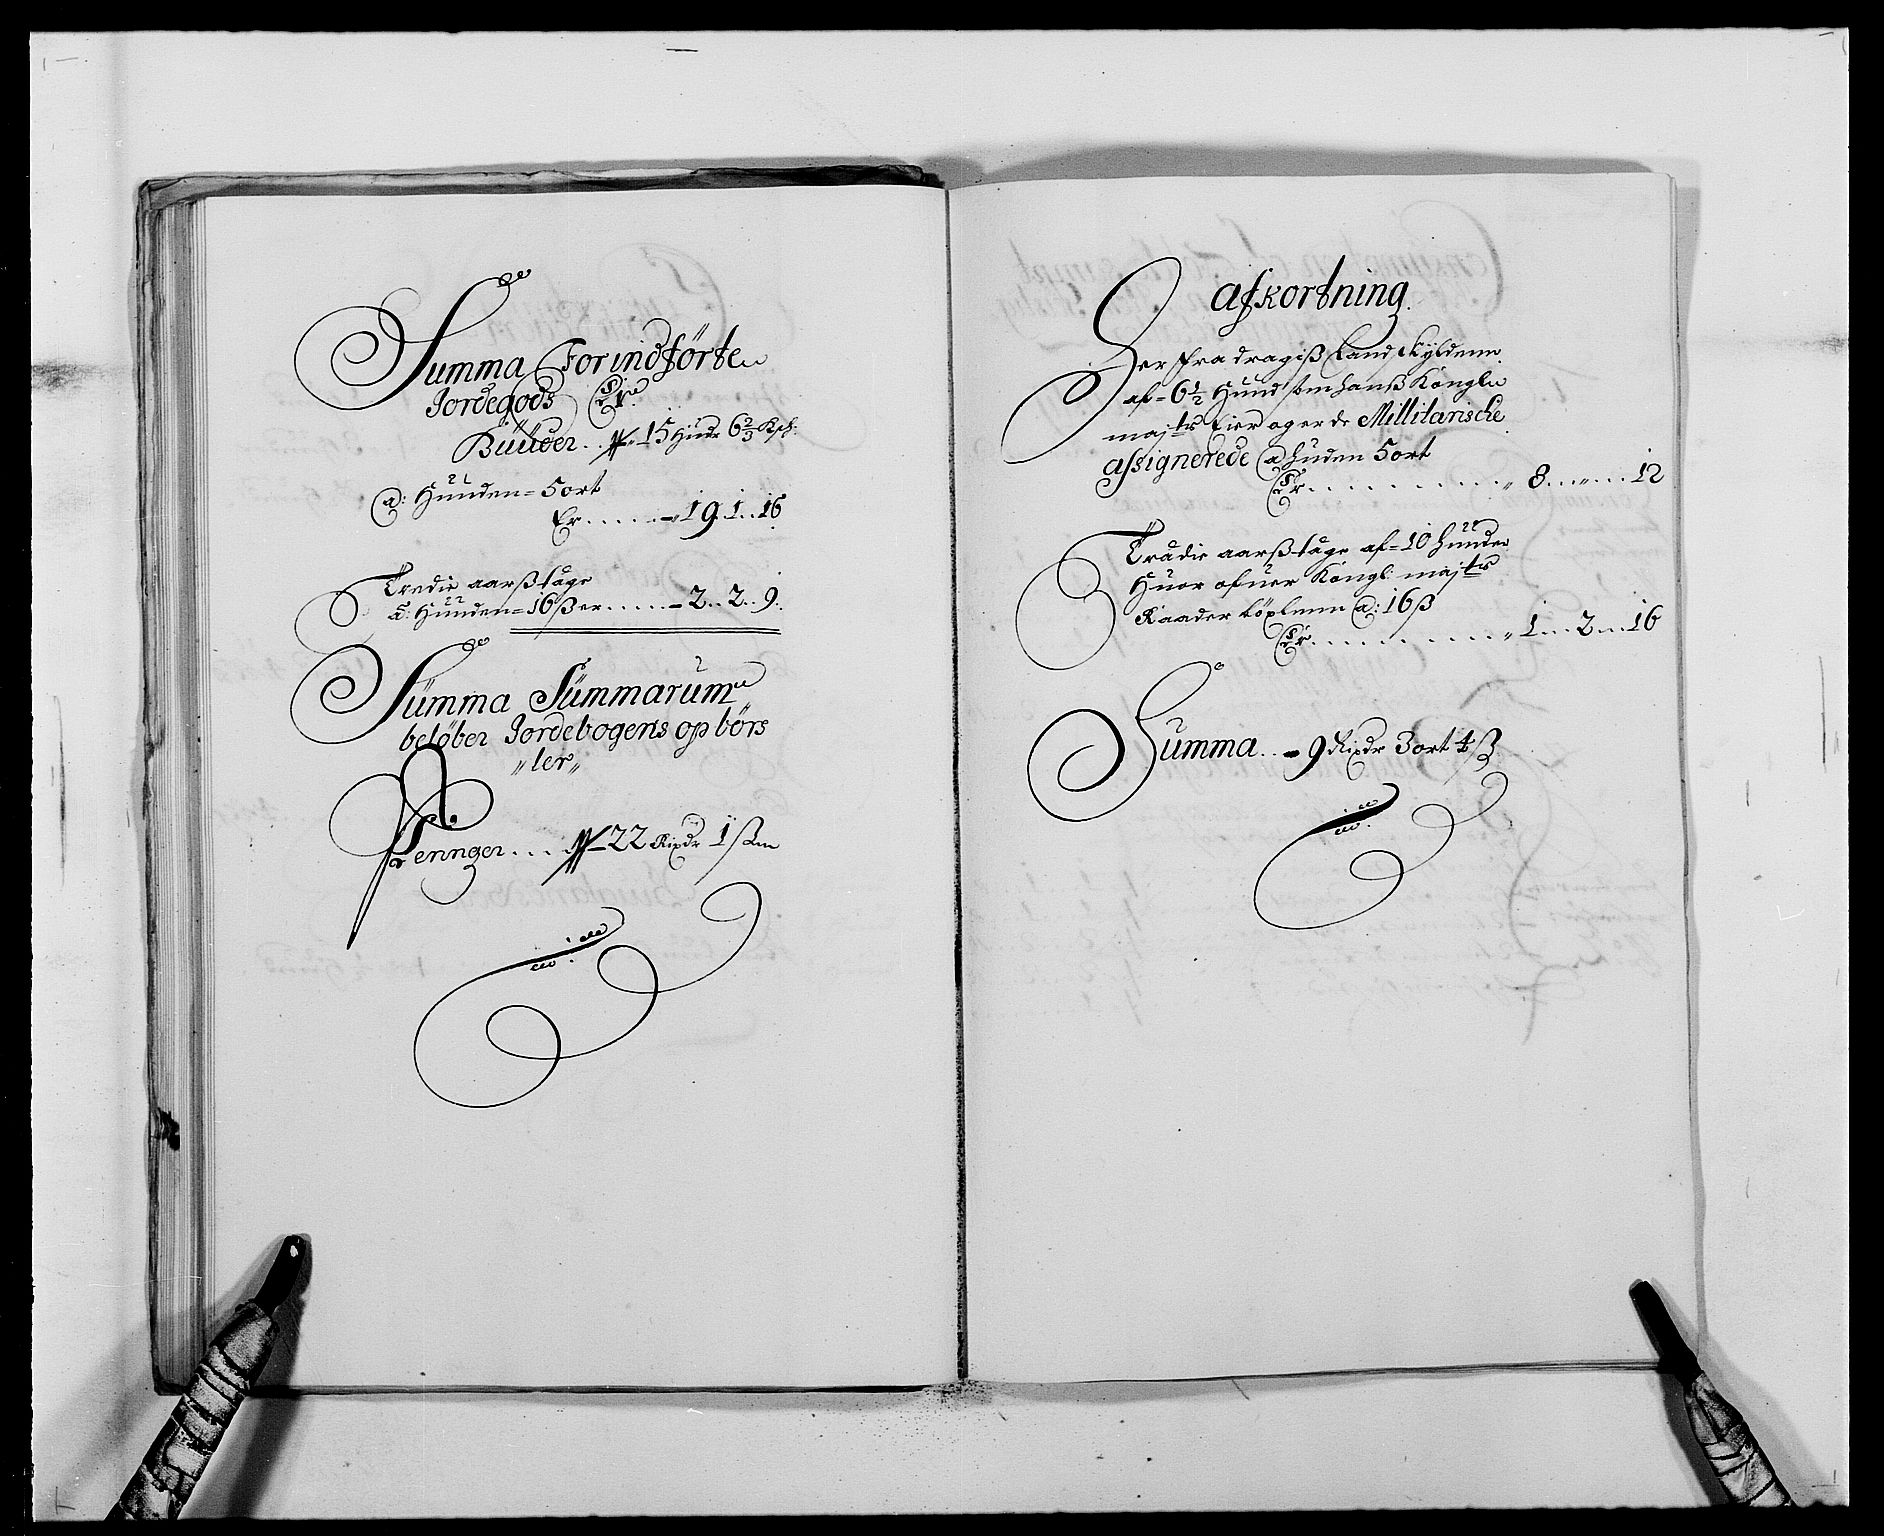 Summa Forindførte
Jordegods Er
Huuder .. 15 Hudr 6 2/3 Kſk:
a: Hünden = 5 ort
Er ...... 19. 1.. 16
Tredie aarß tage
a: Hünden = 16 ß er ..... 2.. 2.. 9.
Summa Summarum
beløber Jordebogens opbörs
„ler„
Pennger .... 22 Rixdr 1 ß
afkortning
Her fra dragiß Landſkÿldenn
af = 6 1/2 Hund som hanß Kongl
majtr eier og er de Millitariſche
aſsignerede a huden 5 ort
Er .......... 8 ...„... 12
Trædie aarß tage af = 10 hüder
Huor ofuer Kongl: majtr
Raader a: 16 ß
Er .......... 1 ... 2 ... 16
Summa .. 9 Rixdr 3 ort 4 ß